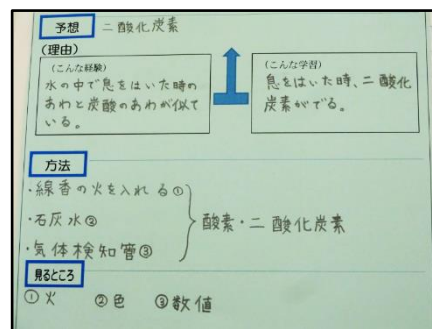 予想 二酸化炭素
(理由)
(こんな経験)
水の中で息をはいた時の
あわと炭酸のあわが似て
いる。
(こんな学習)
息をはいた時、二酸化
炭素がでる。
方法
・線香の火を入れる①
・石灰水②
・気体検知管③
酸素・二酸化炭素
見るところ
①火 ②色 ③数値